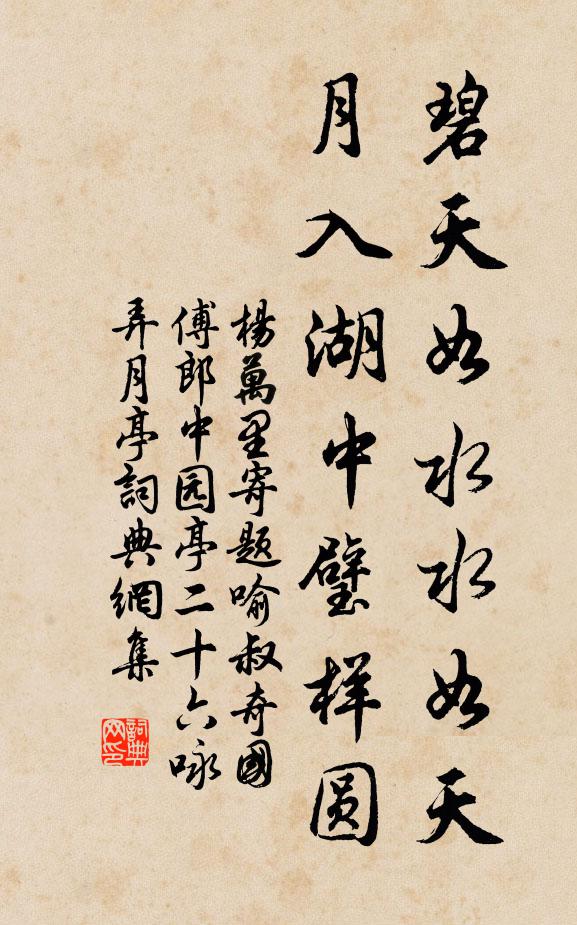 碧天如水水如天
月入湖中璧样圆
楊萬里寄题喻叔奇國
傅郎中园亭二十六咏
弄月亭詞典網集
詞典网印